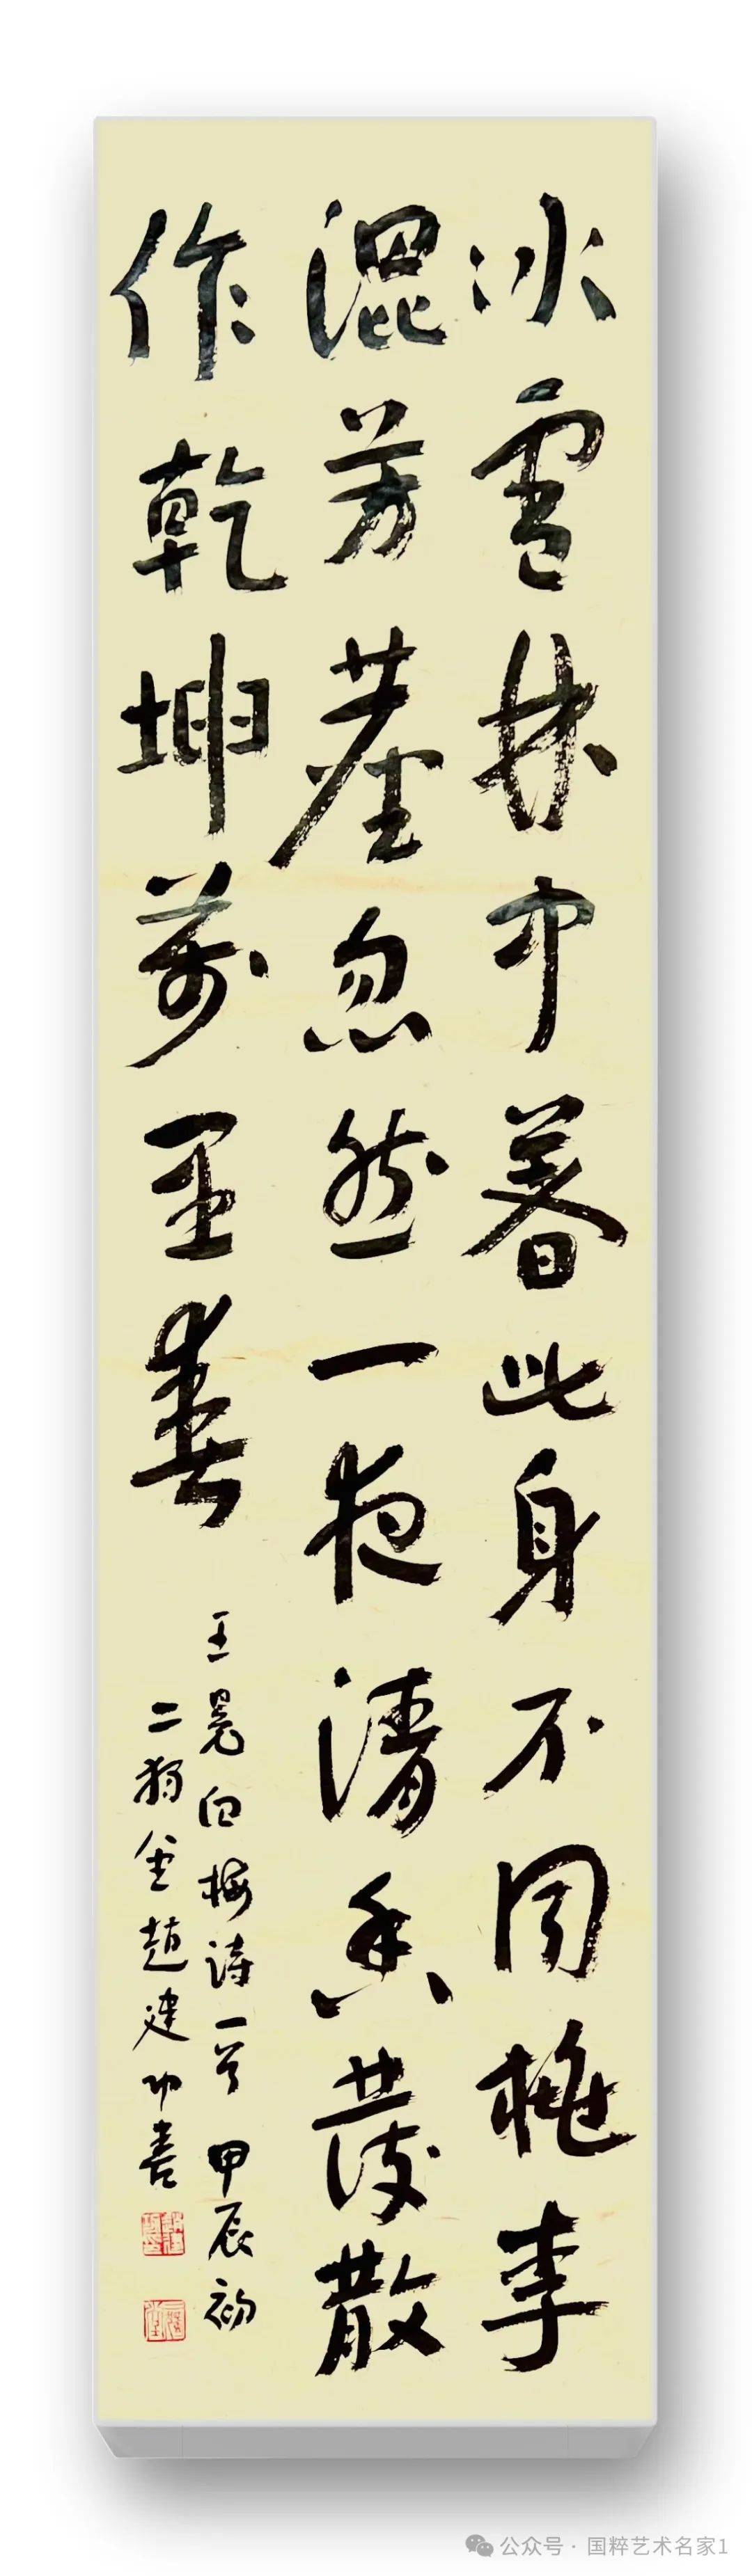 冰雪林中著此身不同桃李
混芳塵忽然一夜清香發散
作乾坤萬里春
王冕白梅詩一首 甲辰初
趙建功書
公众号 · 国粹艺术名家1